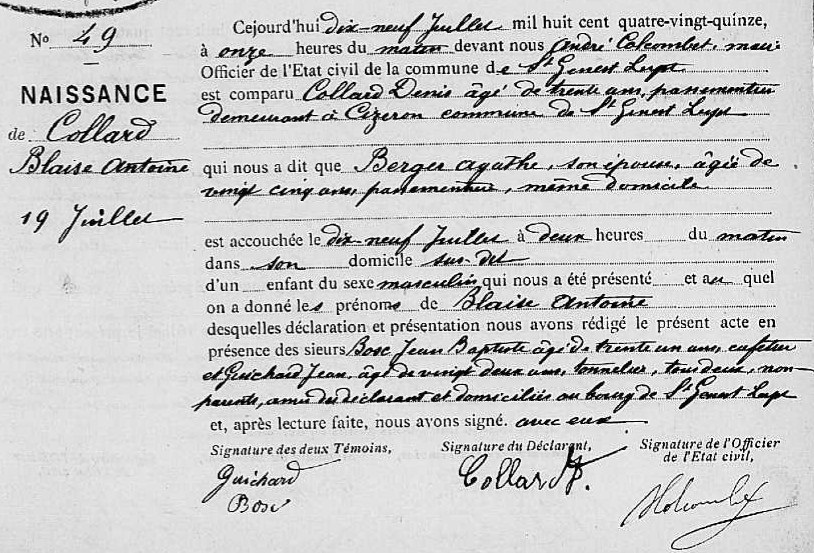 No 49
NAISSANCE
de Collard
Blaise Antoine
19 Juillet
Cejourd'hui dix-neuf Juillet mil huit cent quatre-vingt-quinze,
à onze heures du matin devant nous André Colcombet, maire
Officier de l'Etat civil de la commune de St Genest Lerpt
est comparu Collard Denis âgé de trente ans, passementier
demeurant à Cizeron commune de St Genest Lerpt
qui nous a dit que Berger Agathe, son épouse, âgée de
vingt cinq ans, passementière, même domicile
est accouchée le dix-neuf Juillet à deux heures du matin
dans son domicile sus-dit
d'un enfant du sexe masculin qui nous a été présenté et au quel
on a donné les prénoms de Blaise Antoine
desquelles déclaration et présentation nous avons rédigé le présent acte en
présence des sieurs Bosc Jean Baptiste âgé de trente un ans, cafetier
et Guichard Jean, âgé de vingt deux ans, tonnelier, tous deux, non-
parents, amis du déclarant et domiciliés au bourg de St Genest Lerpt
et, après lecture faite, nous avons signé. avec eux
Signature des deux Témoins, Signature du Déclarant, Signature de l'Officier
de l'Etat civil,
Guichard
Bosc
Collard
Colcombet